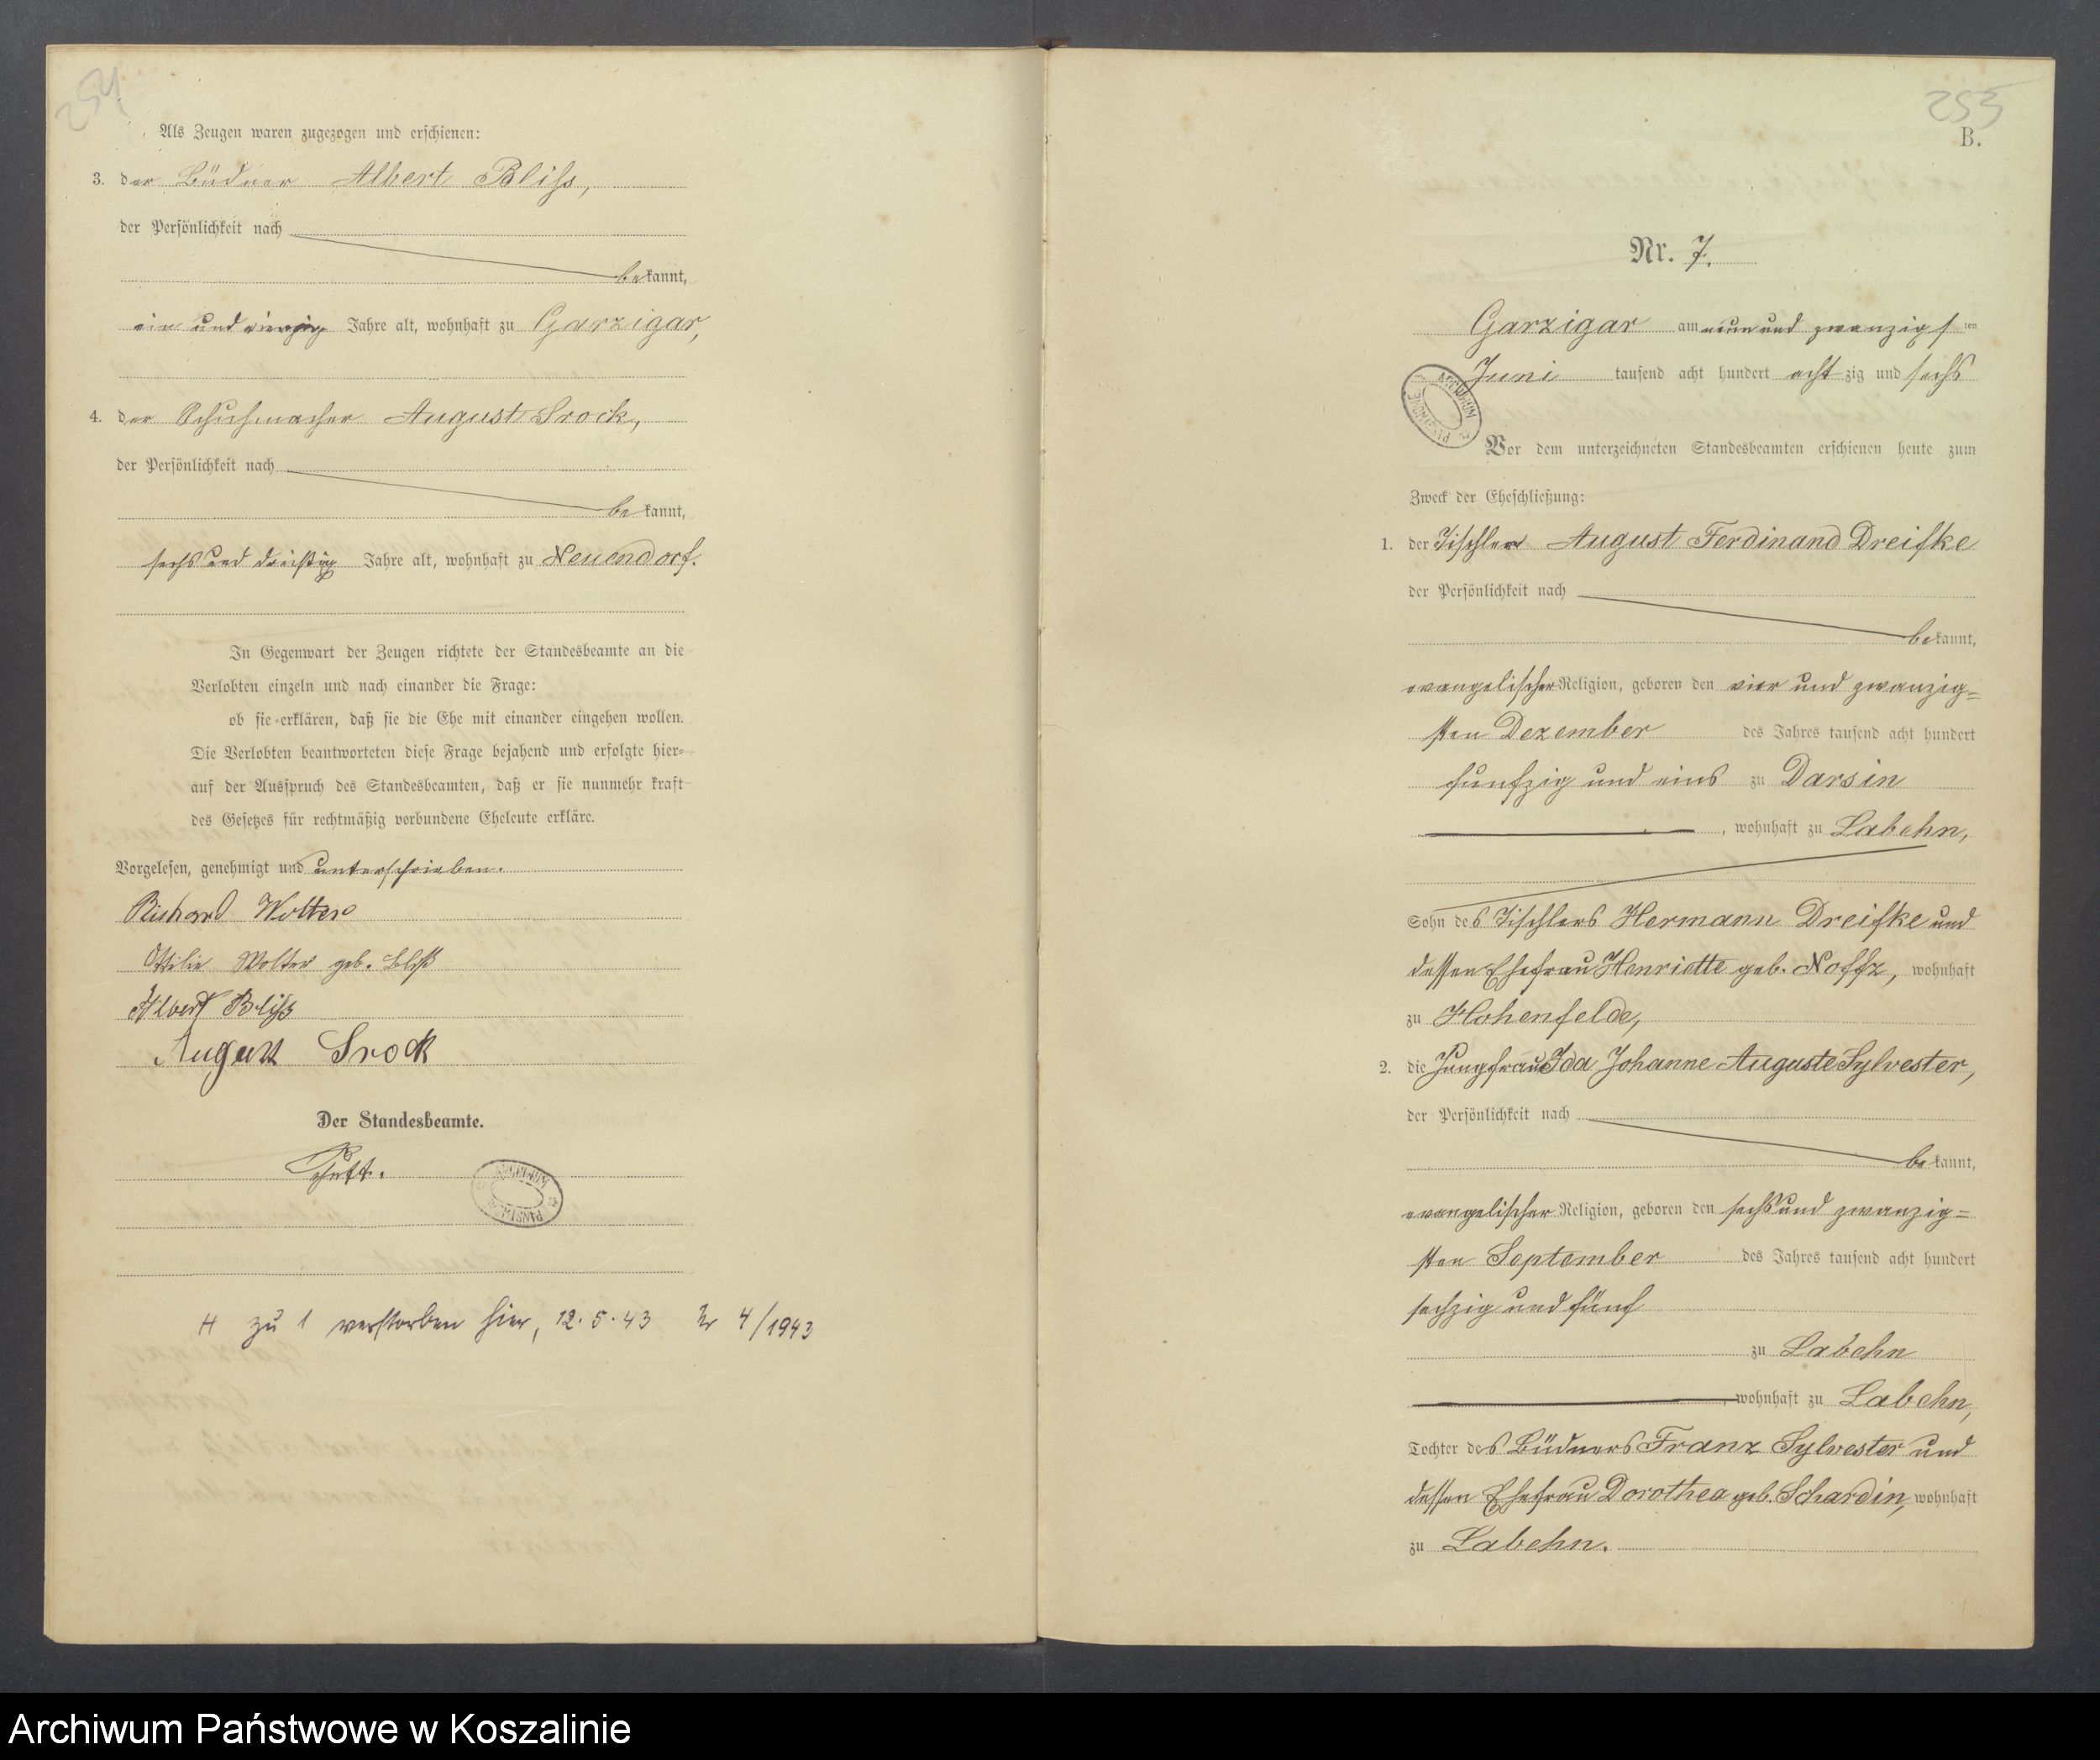 254
Als Zeugen waren zugezogen und erschienen:
3. der Büdner Albert Bliss,
der Persönlichkeit nach
bekannt,
ein und vierzig Jahre alt, wohnhaft zu Garzigar,
4. der Schuhmacher August Srock,
der Persönlichkeit nach
bekannt,
sechs und dreißig Jahre alt, wohnhaft zu Neuendorf.
In Gegenwart der Zeugen richtete der Standesbeamte an die
Verlobten einzeln und nach einander die Frage:
ob sie erklären, daß sie die Ehe mit einander eingehen wollen.
Die Verlobten beantworteten diese Frage bejahend und erfolgte hier-
auf der Ausspruch des Standesbeamten, daß er sie nunmehr kraft
des Gesetzes für rechtmäßig verbundene Eheleute erkläre.
Vorgelesen, genehmigt und unterschrieben.
Richard Wolter
Ottilie Wolter geb. Bliß
Albert Bliss
August Srock
Der Standesbeamte.
H zu 1 verstorben hier, 12.5.43 Nr 4/1943
255
B.
Nr. 7.
Garzigar am neun und zwanzigsten
Juni tausend acht hundert achtzig und sechs
Vor dem unterzeichneten Standesbeamten erschienen heute zum
Zweck der Eheschließung:
1. der Tischler August Ferdinand Dreifke
der Persönlichkeit nach
bekannt,
evangelischer Religion, geboren den vier und zwanzig=
sten Dezember des Jahres tausend acht hundert
funfzig und eins zu Darsin
, wohnhaft zu Labehn,
Sohn des Tischlers Hermann Dreifke und
dessen Ehefrau Henriette geb. Noffz, wohnhaft
zu Hohenfelde,
2. die Jungfrau Ida Johanne Auguste Sylvester,
der Persönlichkeit nach
bekannt,
evangelischer Religion, geboren den sechs und zwanzig=
sten September des Jahres tausend acht hundert
sechzig und fünf
zu Labehn
, wohnhaft zu Labehn,
Tochter des Büdners Franz Sylvester und
dessen Ehefrau Dorothea geb. Schardin, wohnhaft
zu Labehn.
Archiwum Państwowe w Koszalinie